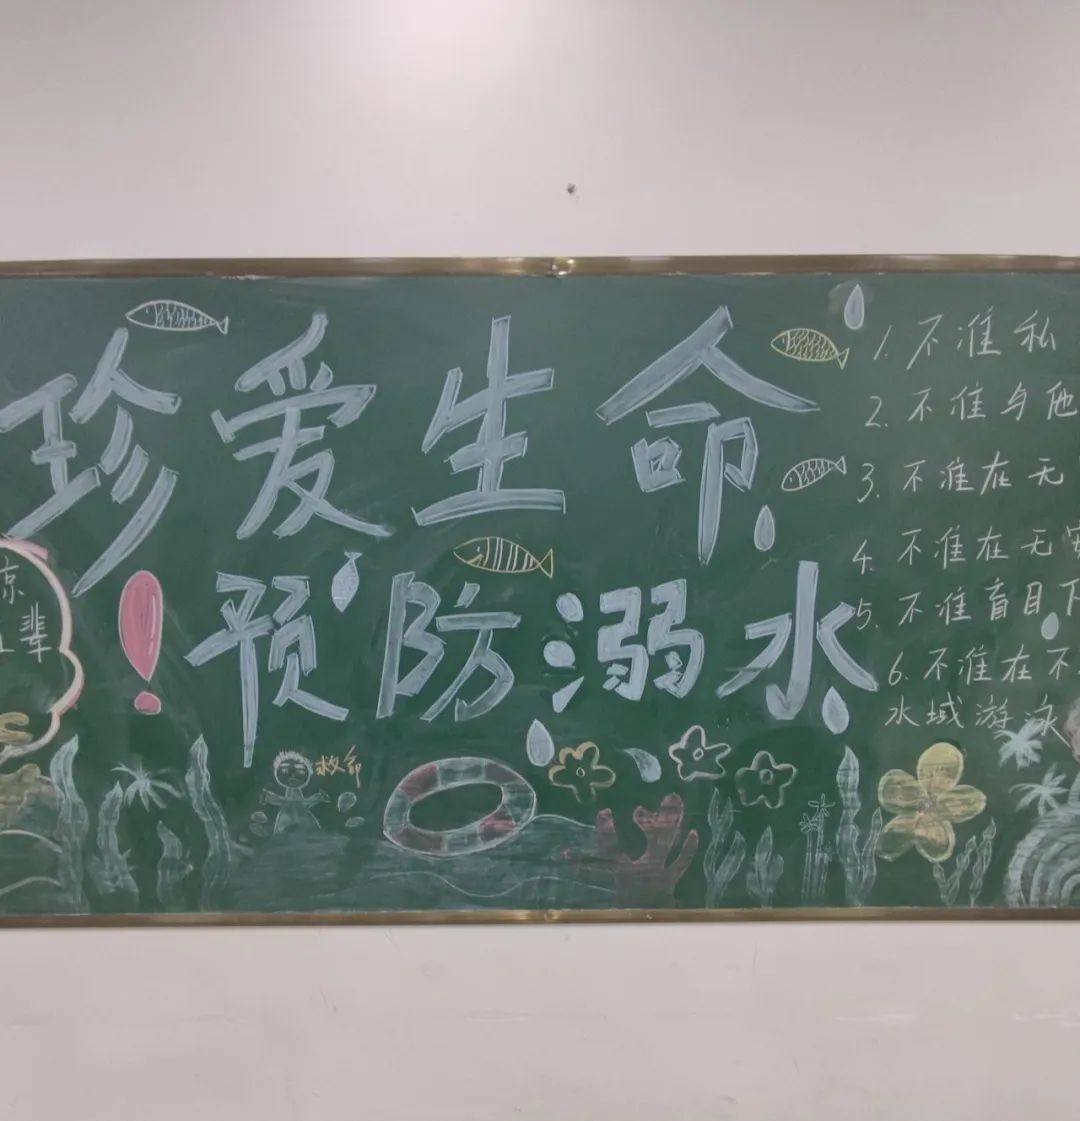 珍爱生命
！预防溺水
1. 不准私
2. 不准与他
3. 不准在无
4. 不准在无安
5. 不准盲目下
6. 不准在不
水域游泳
凉
辈
救命